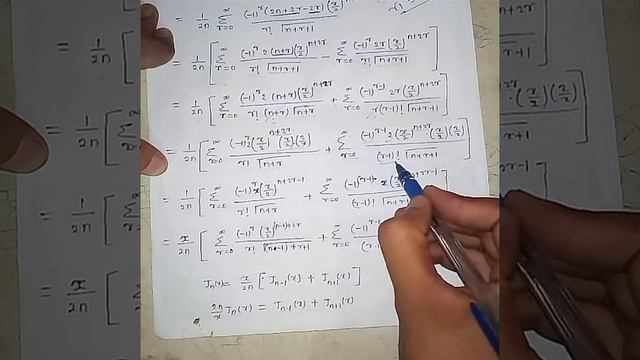 = 1/2n Σ_{r=0}^{∞} (-1)^r (2n+2r-2r) (x/2)^{n+2r} / r! Γn+r+1
= 1/2n [ Σ_{r=0}^{∞} (-1)^r 2(n+r) (x/2)^{n+2r} / r! Γn+r+1 - Σ_{r=0}^{∞} (-1)^r 2r (x/2)^{n+2r} / r! Γn+r+1 ]
= 1/2n [ Σ_{r=0}^{∞} (-1)^r 2 (n+r) (x/2)^{n+2r} / r! (n+r) Γn+r + Σ_{r=0}^{∞} (-1)^{r-1} 2r (x/2)^{n+2r} / r(r-1)! Γn+r+1 ]
= 1/2n [ Σ_{r=0}^{∞} (-1)^r 2 (x/2)^{n+2r} (x/2) (2/x) / r! Γn+r + Σ_{r=0}^{∞} (-1)^{r-1} 2 (x/2)^{n+2r} (x/2) (2/x) / (r-1)! Γn+r+1 ]
= 1/2n [ Σ_{r=0}^{∞} (-1)^r x (x/2)^{n+2r-1} / r! Γn+r + Σ_{r=0}^{∞} (-1)^{r-1} x (x/2)^{n+2r-1} / (r-1)! Γn+r
= x/2n [ Σ_{r=0}^{∞} (-1)^r (x/2)^{(n-1)+2r} / r! Γ(n-1)+r+1 + Σ_{r=0}^{∞} (-1)^{r-1}
J_n(x) = x/2n [ J_{n-1}(x) + J_{n+1}(x) ]
2n/x J_n(x) = J_{n-1}(x) + J_{n+1}(x)